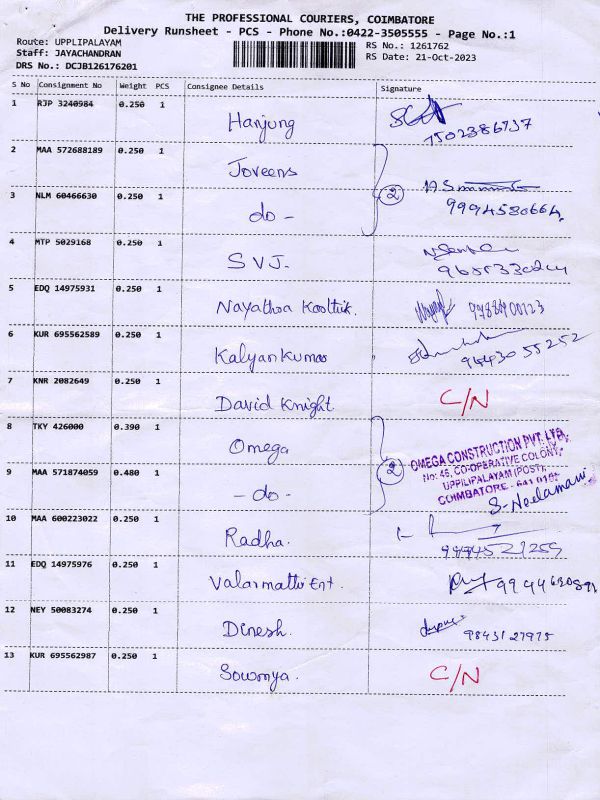 THE PROFESSIONAL COURIERS, COIMBATORE
Delivery Runsheet - PCS - Phone No.:0422-3505555 - Page No.:1
Route: UPPLIPALAYAM RS No.: 1261762
Staff: JAYACHANDRAN RS Date: 21-Oct-2023
DRS No.: DCJB126176201
S No Consignment No Weight PCS Consignee Details Signature
1 RJP 3240984 0.250 1 Hanjung
7502386737
2 MAA 572688189 0.250 1 Joveens
3 NLM 60466630 0.250 1 do - 2 9994580664
4 MTP 5029168 0.250 1 SVJ.
5 EDQ 14975931 0.250 1 Nayathra 9788900123
6 KUR 695562589 0.250 1 Kalyan Kumar 9443055252
7 KNR 2082649 0.250 1 David Knight C/N
8 TKY 426000 0.390 1 Omega
OMEGA CONSTRUCTION PVT. LTD.
No: 45, CO-OPERATIVE COLONY
UPPILIPALAYAM (POST)
COIMBATORE - 641 015
9 MAA 571874059 0.480 1 - do - 2 S. Neelamani
10 MAA 600223022 0.250 1 Radha.
11 EDQ 14975976 0.250 1 Valarmathi Ent.
12 NEY 50083274 0.250 1 Dinesh. 9843127975
13 KUR 695562987 0.250 1 Sowmya. C/N